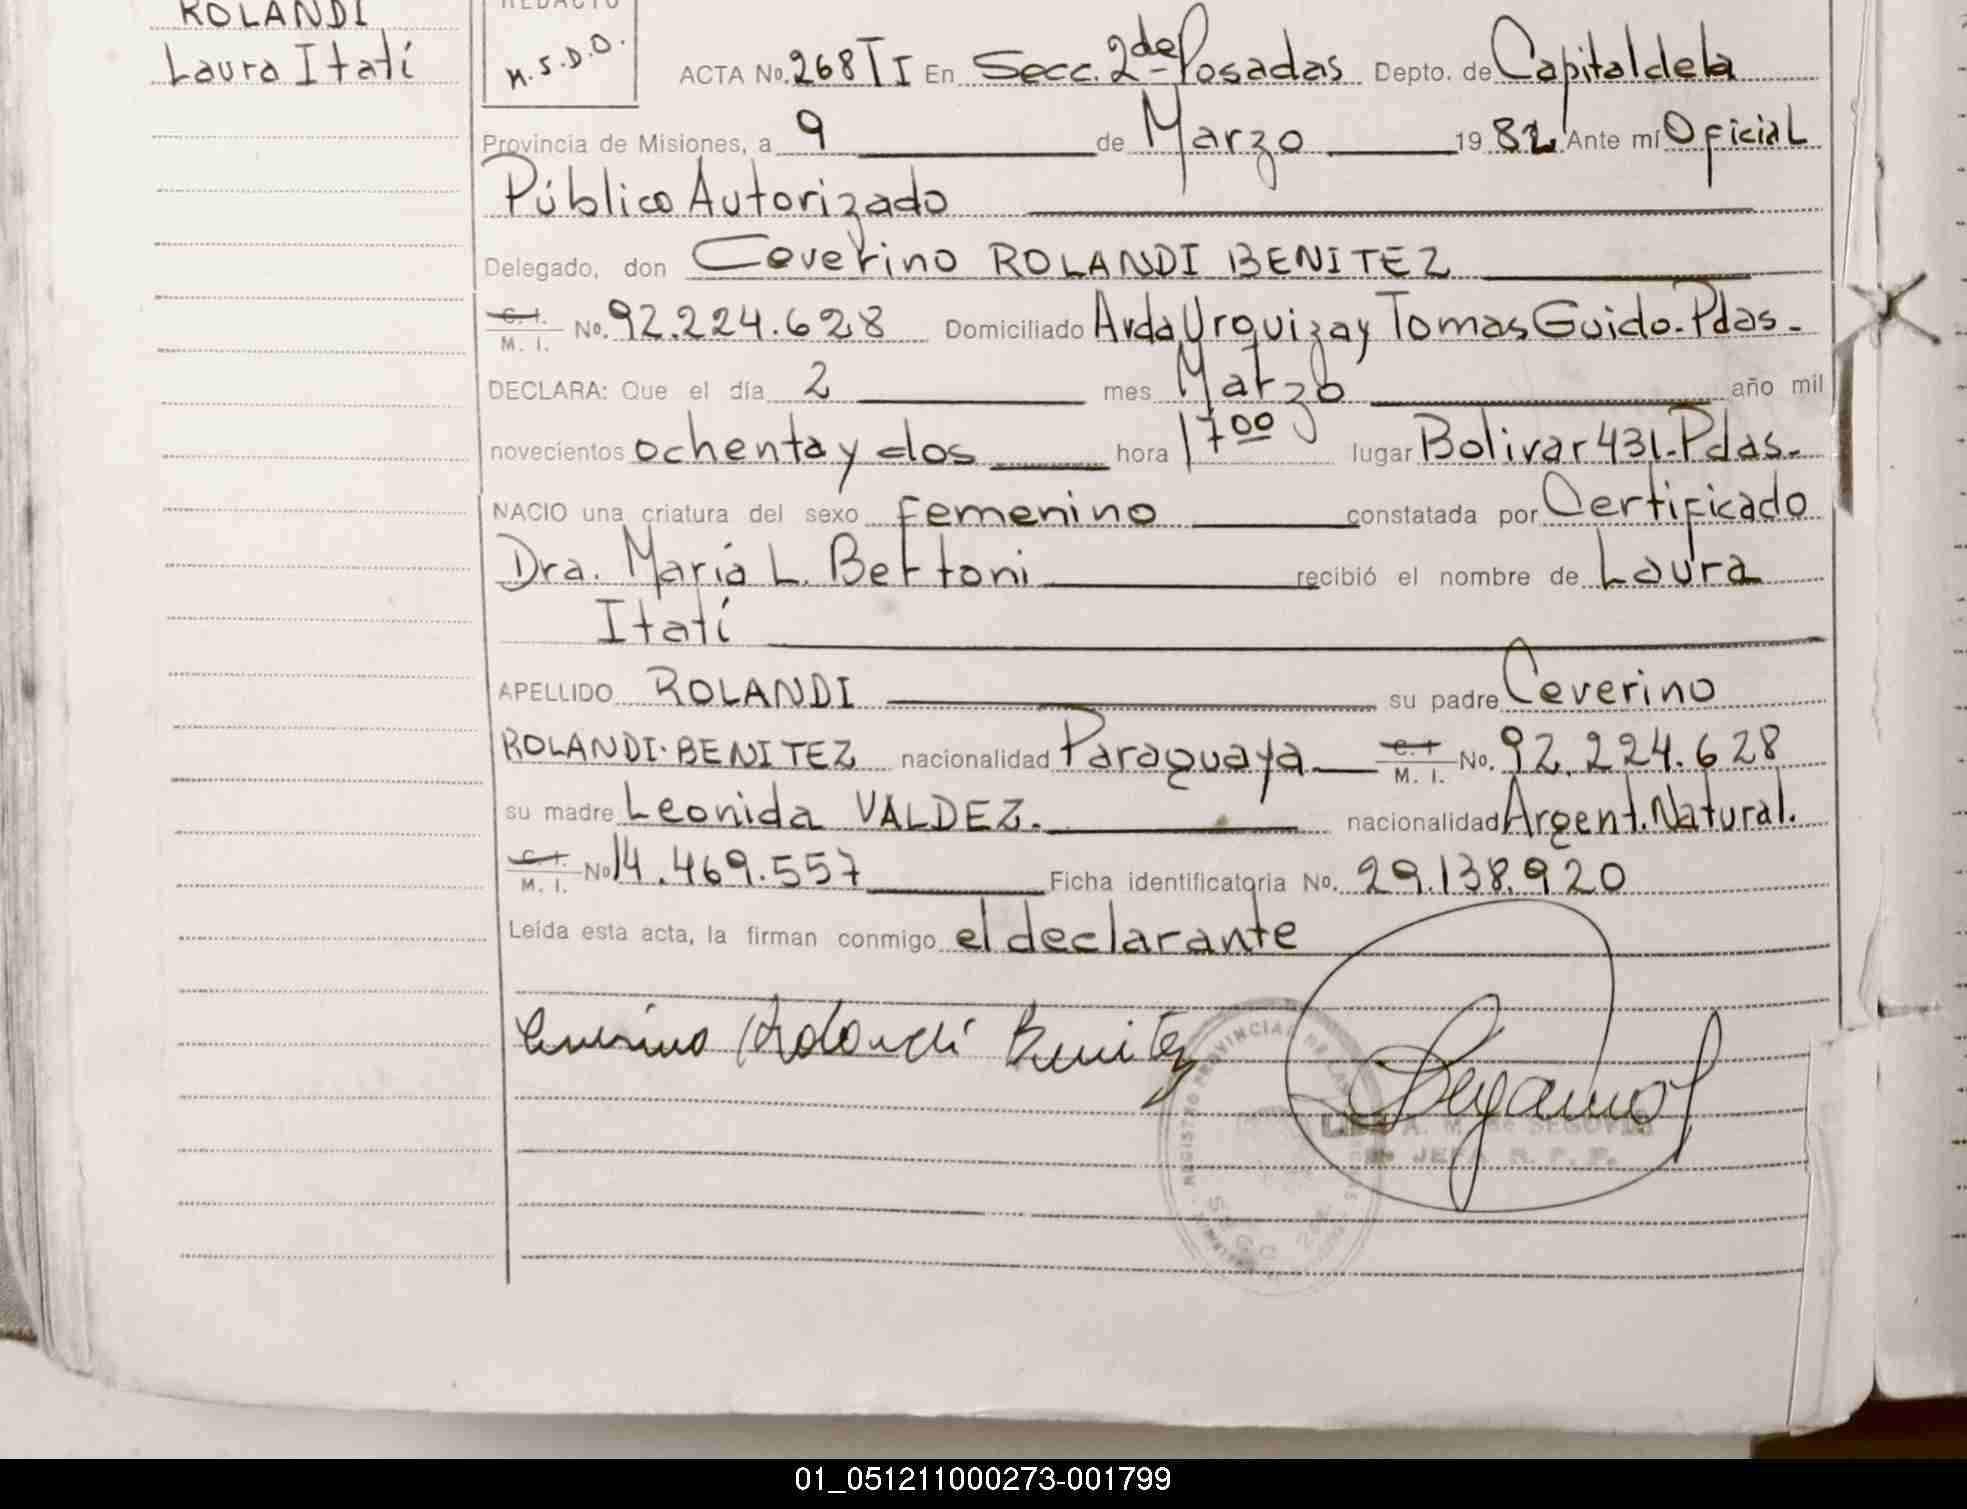 ROLANDI
Laura Itatí
REDACTO
M.S.D.O.
ACTA No. 268 TI En Secc. 2de-Posadas Depto. de Capital de la
Provincia de Misiones, a 9 de Marzo 1982 Ante mí Oficial
Público Autorizado
Delegado, don Ceverino ROLANDI BENITEZ
C. I. M. I. No. 92.224.628 Domiciliado Avda Urquiza y Tomas Guido.-Pdas-
DECLARA: Que el día 2 mes Marzo año mil
novecientos ochenta y dos hora 17 00 lugar Bolivar 431-Pdas-
NACIO una criatura del sexo femenino constatada por Certificado
Dra. María L. Bertoni recibió el nombre de Laura
Itatí
APELLIDO ROLANDI su padre Ceverino
ROLANDI-BENITEZ nacionalidad Paraguaya C. I. M. I. No. 92.224.628
su madre Leonida VALDEZ. nacionalidad Argent. Natural.
C. I. M. I. No 14.469.557 Ficha identificatoria No. 29.138.920
Leída esta acta, la firman conmigo el declarante
Ceverino Rolandi Benitez
REGISTRO PROVINCIAL DE LAS
A. M. de SEGOVIA
JEFA R. P. P.
01_051211000273-001799